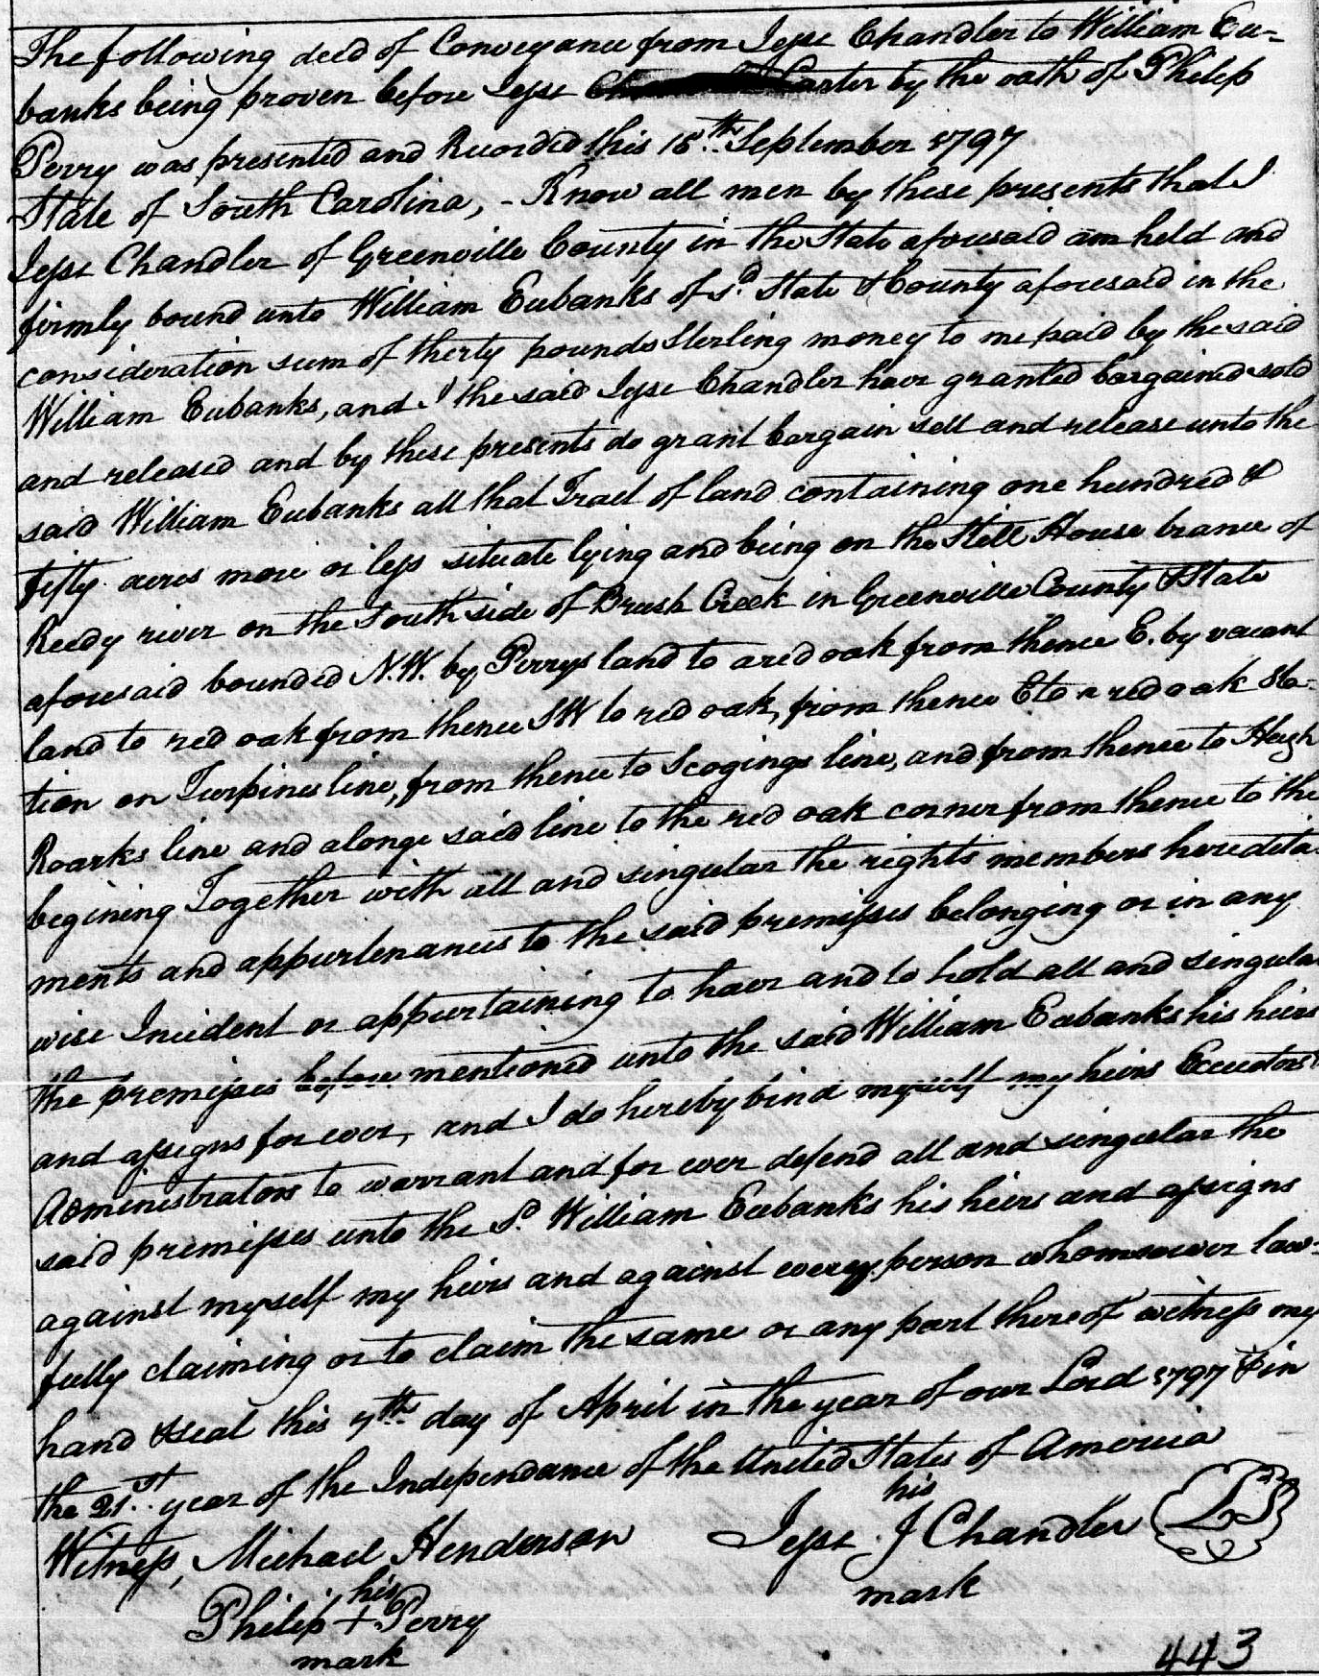 The following deed of Conveyance from Jesse Chandler to William Eu-
banks being proven before Jesse Carter by the oath of Philip
Perry was presented and Recorded this 15th. September 1797
State of South Carolina, - Know all men by these presents that I
Jesse Chandler of Greenville County in the State aforesaid am held and
firmly bound unto William Eubanks of sd. State & County aforesaid in the
consideration sum of therty pounds Sterling money to me paid by the said
William Eubanks, and I the said Jesse Chandler have granted bargained sold
and released and by these presents do grant bargain sell and release unto the
said William Eubanks all that Tract of land containing one hundred &
fifty acres more or less situate lying and being on the Still House brance of
Reedy river on the South side of Brush Creek in Greenville County & State
aforesaid bounded N.W. by Perrys land to a red oak from thence E. by vacant
land to red oak from thence SW to red oak, from thence E to a red oak Sta-
tion on Turpines line, from thence to Scogings line, and from thence to Hugh
Roarks line and alonge said line to the red oak corner from thence to the
begining Together with all and singular the rights members heredita
ments and appurtenances to the said premisses belonging or in any
wise Incident or appurtaining to have and to hold all and singular
the premisses before mentioned unto the said William Eubanks his heirs
and assigns for ever, and I do hereby bind myself my heirs Executors
Administrators to warrant and for ever defend all and singular the
said premisses unto the Sd. William Eubanks his heirs and assigns
against myself my heirs and against every person whomsoever law-
fully claiming or to claim the same or any part thereof witness my
hand & seal this 7th day of April in the year of our Lord 1797 & in
the 21st. year of the Independance of the United States of America
his
Witness, Michael Henderson Jesse J Chandler LS
his mark
Philip + Perry
mark
443